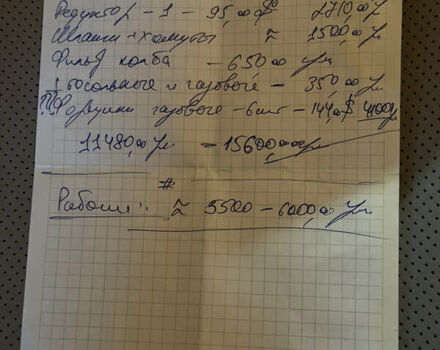 Редуктор - 1 - 95,00 $ 2710,00 Ун
Шланги + хомуты ≈ 1500,00 Ун
Фильтр колба - 650 00 грн
бензольные и газовые - 350,00 Ун
?? Форсунки газовые - 6 шт - 144,00 $ 4100 Ун
11480,00 Ун - 15600,00 Ун
#
Работы: ≈ 3500 - 6000,00 Ун